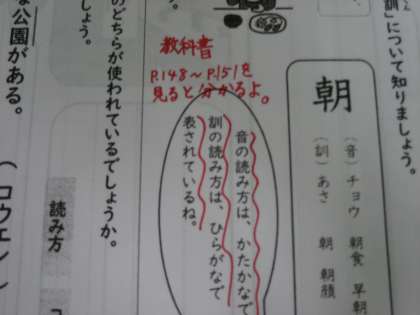 訓」について知りましょう。
朝
(音)チョウ 朝食 早朝
(訓)あさ 朝 朝顔
音の読み方は、かたかなで
訓の読み方は、ひらがなで
表されているね。
教科書
P.148〜P.151を
見ると分かるよ。
しょう。
のどちらが使われているでしょうか。
読み方
な公園がある。
(コウエン